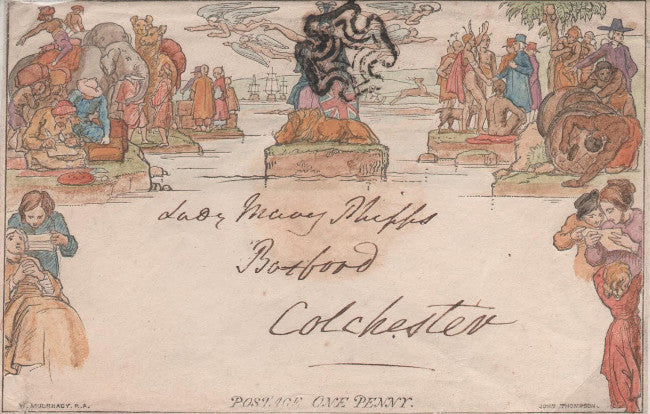 Lady Mary Phipps
Boxford
Colchester
POSTAGE ONE PENNY.
W. MULREADY, R.A.
JOHN THOMPSON.